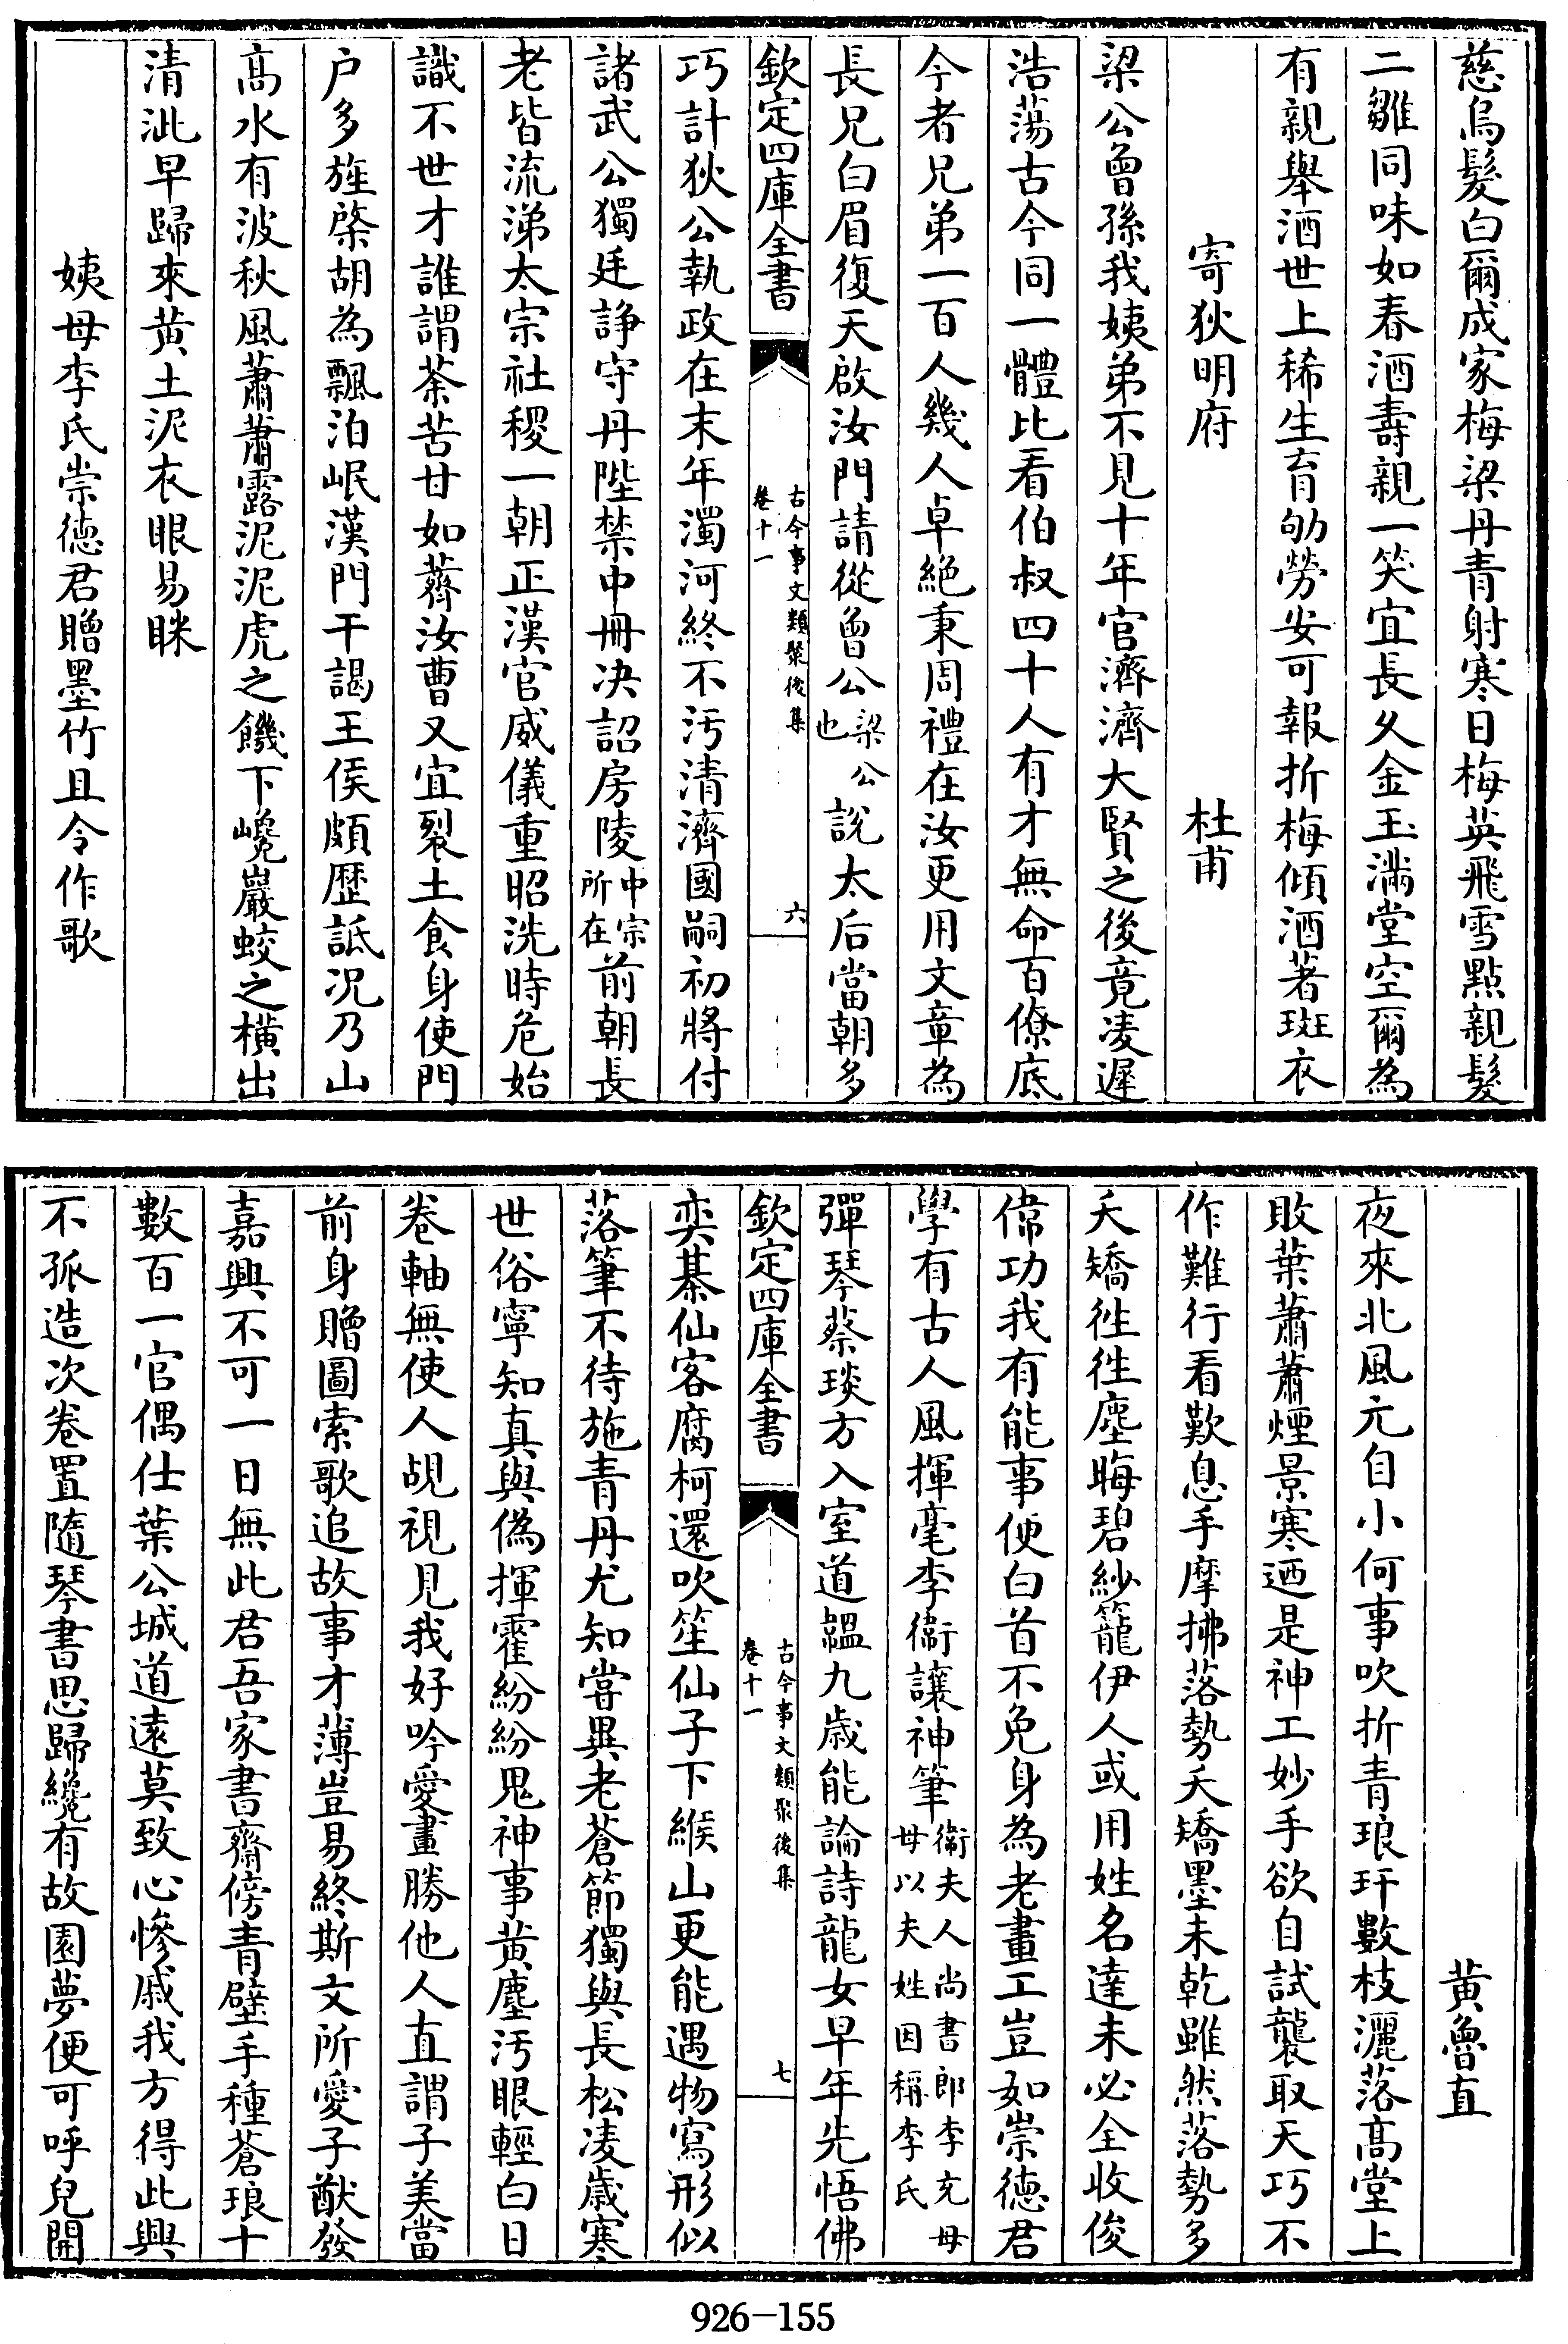 慈烏髮白爾成家梅梁丹青射寒日梅英飛雪點親髮
二雛同味如春酒壽親一笑宜長久金玉滿堂空爾為
有親舉酒世上稀生育劬勞安可報折梅傾酒著斑衣
寄狄明府　杜甫
梁公曾孫我姨弟不見十年官濟濟大賢之後竟凌遲
浩蕩古今同一體比看伯叔四十人有才無命百僚底
今者兄弟一百人幾人卓絶秉周禮在汝更用文章為
長兄白眉復天啟汝門請從曾公梁公也說太后當朝多
欽定四庫全書　古今事文類聚後集卷十一　六
巧計狄公執政在末年濁河終不污清濟國嗣初將付
諸武公獨廷諍守丹陛禁中冊决詔房陵中宗所在前朝長
老皆流涕太宗社稷一朝正漢官威儀重昭洗時危始
識不世才誰謂荼苦甘如薺汝曹又宜裂土食身使門
户多旌棨胡為飄泊岷漢門干謁王侯頗歴詆况乃山
髙水有波秋風蕭蕭露泥泥虎之饑下巉巖蛟之橫出
清泚早歸來黄土泥衣眼易眯
姨母李氏崇徳君贈墨竹且令作歌
黄魯直
夜來北風元自小何事吹折青琅玕數枝灑落髙堂上
敗葉蕭蕭煙景寒迺是神工妙手欲自試襲取天巧不
作難行看歎息手摩拂落勢夭矯墨未乾雖然落勢多
夭矯徃徃塵晦碧紗籠伊人或用姓名達未必全收俊
偉功我有能事便白首不免身為老畫工豈如崇徳君
學有古人風揮毫李衞讓神筆衞夫人尚書郎李充母母以夫姓因稱李氏
彈琴蔡琰方入室道韞九歲能論詩龍女早年先悟佛
欽定四庫全書　古今事文類聚後集卷十一　七
奕棊仙客腐柯還吹笙仙子下緱山更能遇物寫形似
落筆不待施青丹尤知嘗異老蒼節獨與長松凌歲寒
世俗寧知真與偽揮霍紛紛鬼神事黄塵汚眼輕白日
卷軸無使人覘視見我好吟愛畫勝他人直謂子美當
前身贈圖索歌追故事才薄豈易終斯文所愛子猷發
嘉興不可一日無此君吾家書齋傍青壁手種蒼琅十
數百一官偶仕葉公城道遠莫致心慘戚我方得此興
不孤造次卷置隨琴書思歸纔有故園夢便可呼兒開
926-155